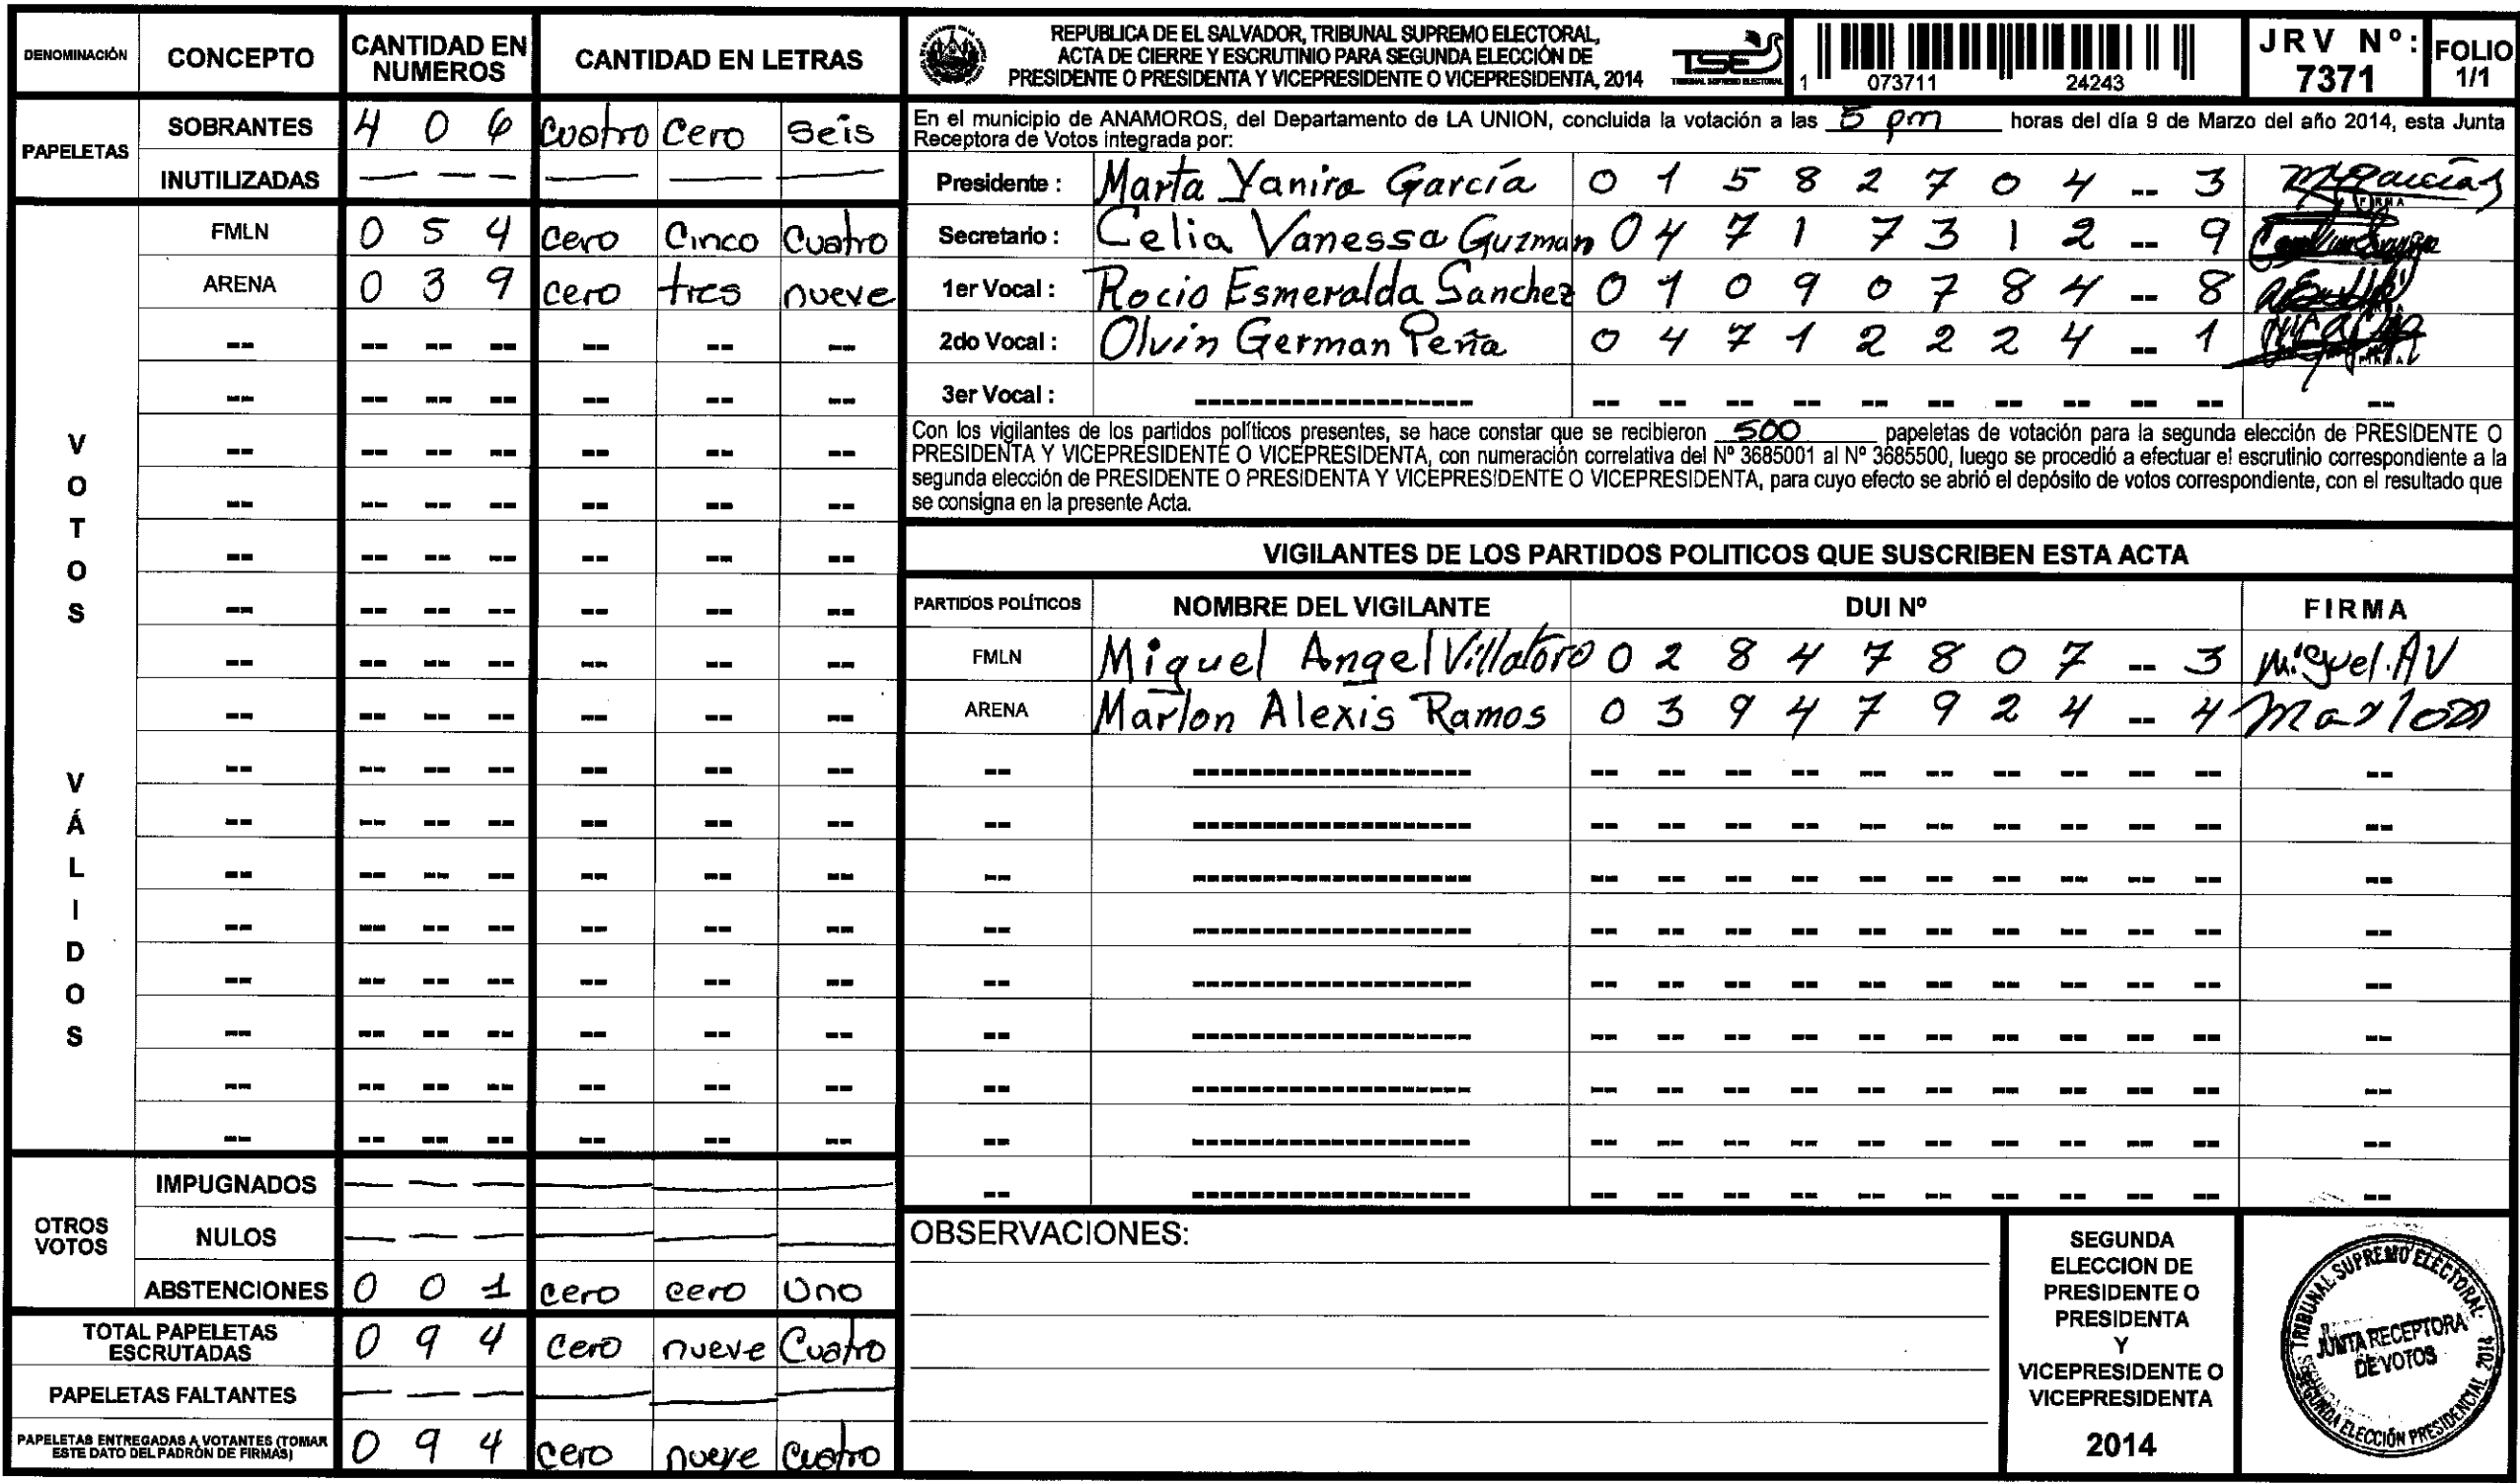 DENOMINACIÓN CONCEPTO CANTIDAD EN NUMEROS CANTIDAD EN LETRAS
PAPELETAS
SOBRANTES 4 0 6 cuatro cero seis
INUTILIZADAS — — — — — —
VOTOS VÁLIDOS
FMLN 0 5 4 cero Cinco Cuatro
ARENA 0 3 9 cero tres nueve
OTROS VOTOS
IMPUGNADOS — — — — — —
NULOS — — — — — —
ABSTENCIONES 0 0 1 cero cero Uno
TOTAL PAPELETAS ESCRUTADAS 0 9 4 cero nueve Cuatro
PAPELETAS FALTANTES — — — — — —
PAPELETAS ENTREGADAS A VOTANTES (TOMAR ESTE DATO DEL PADRÓN DE FIRMAS) 0 9 4 cero nueve cuatro
REPUBLICA DE EL SALVADOR, TRIBUNAL SUPREMO ELECTORAL,
ACTA DE CIERRE Y ESCRUTINIO PARA SEGUNDA ELECCIÓN DE
PRESIDENTE O PRESIDENTA Y VICEPRESIDENTE O VICEPRESIDENTA, 2014
TSE
TRIBUNAL SUPREMO ELECTORAL
1 073711 24243
JRV Nº: 7371
FOLIO 1/1
En el municipio de ANAMOROS, del Departamento de LA UNION, concluida la votación a las 5 pm horas del día 9 de Marzo del año 2014, esta Junta
Receptora de Votos integrada por:
Presidente : Marta Yanira García 0 1 5 8 2 7 0 4 -- 3
Secretario : Celia Vanessa Guzman 0 4 7 1 7 3 1 2 -- 9
1er Vocal : Rocio Esmeralda Sanchez 0 1 0 9 0 7 8 4 -- 8
2do Vocal : Olvin German Peña 0 4 7 1 2 2 2 4 -- 1
3er Vocal : -- -- -- -- -- -- -- -- -- --
Con los vigilantes de los partidos políticos presentes, se hace constar que se recibieron 500 papeletas de votación para la segunda elección de PRESIDENTE O
PRESIDENTA Y VICEPRESIDENTE O VICEPRESIDENTA, con numeración correlativa del Nº 3685001 al Nº 3685500, luego se procedió a efectuar el escrutinio correspondiente a la
segunda elección de PRESIDENTE O PRESIDENTA Y VICEPRESIDENTE O VICEPRESIDENTA, para cuyo efecto se abrió el depósito de votos correspondiente, con el resultado que
se consigna en la presente Acta.
VIGILANTES DE LOS PARTIDOS POLITICOS QUE SUSCRIBEN ESTA ACTA
PARTIDOS POLÍTICOS NOMBRE DEL VIGILANTE DUI Nº FIRMA
FMLN Miguel Angel Villatoro 0 2 8 4 7 8 0 7 -- 3 Miguel.AV
ARENA Marlon Alexis Ramos 0 3 9 4 7 9 2 4 -- 4 Marlon
OBSERVACIONES:
SEGUNDA
ELECCION DE
PRESIDENTE O
PRESIDENTA
Y
VICEPRESIDENTE O
VICEPRESIDENTA
2014
TRIBUNAL SUPREMO ELECTORAL
JUNTA RECEPTORA
DE VOTOS
SEGUNDA ELECCIÓN PRESIDENCIAL 2014